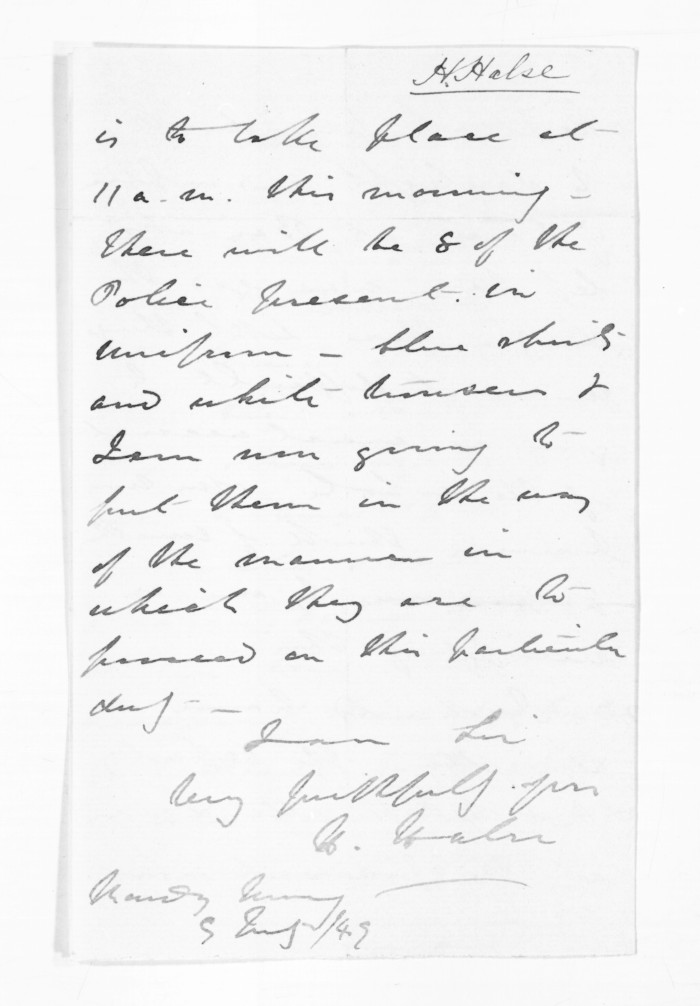 H. Halse
is to take place at
11 a.m. this morning –
there will be 8 of the
Police present in
uniform – blue shirts
and white trousers &
I am now going to
put them in the way
of the manner in
which they are to
proceed on this particular
duty –
I am Sir
Very faithfully yrs
H. Halse
9 /49